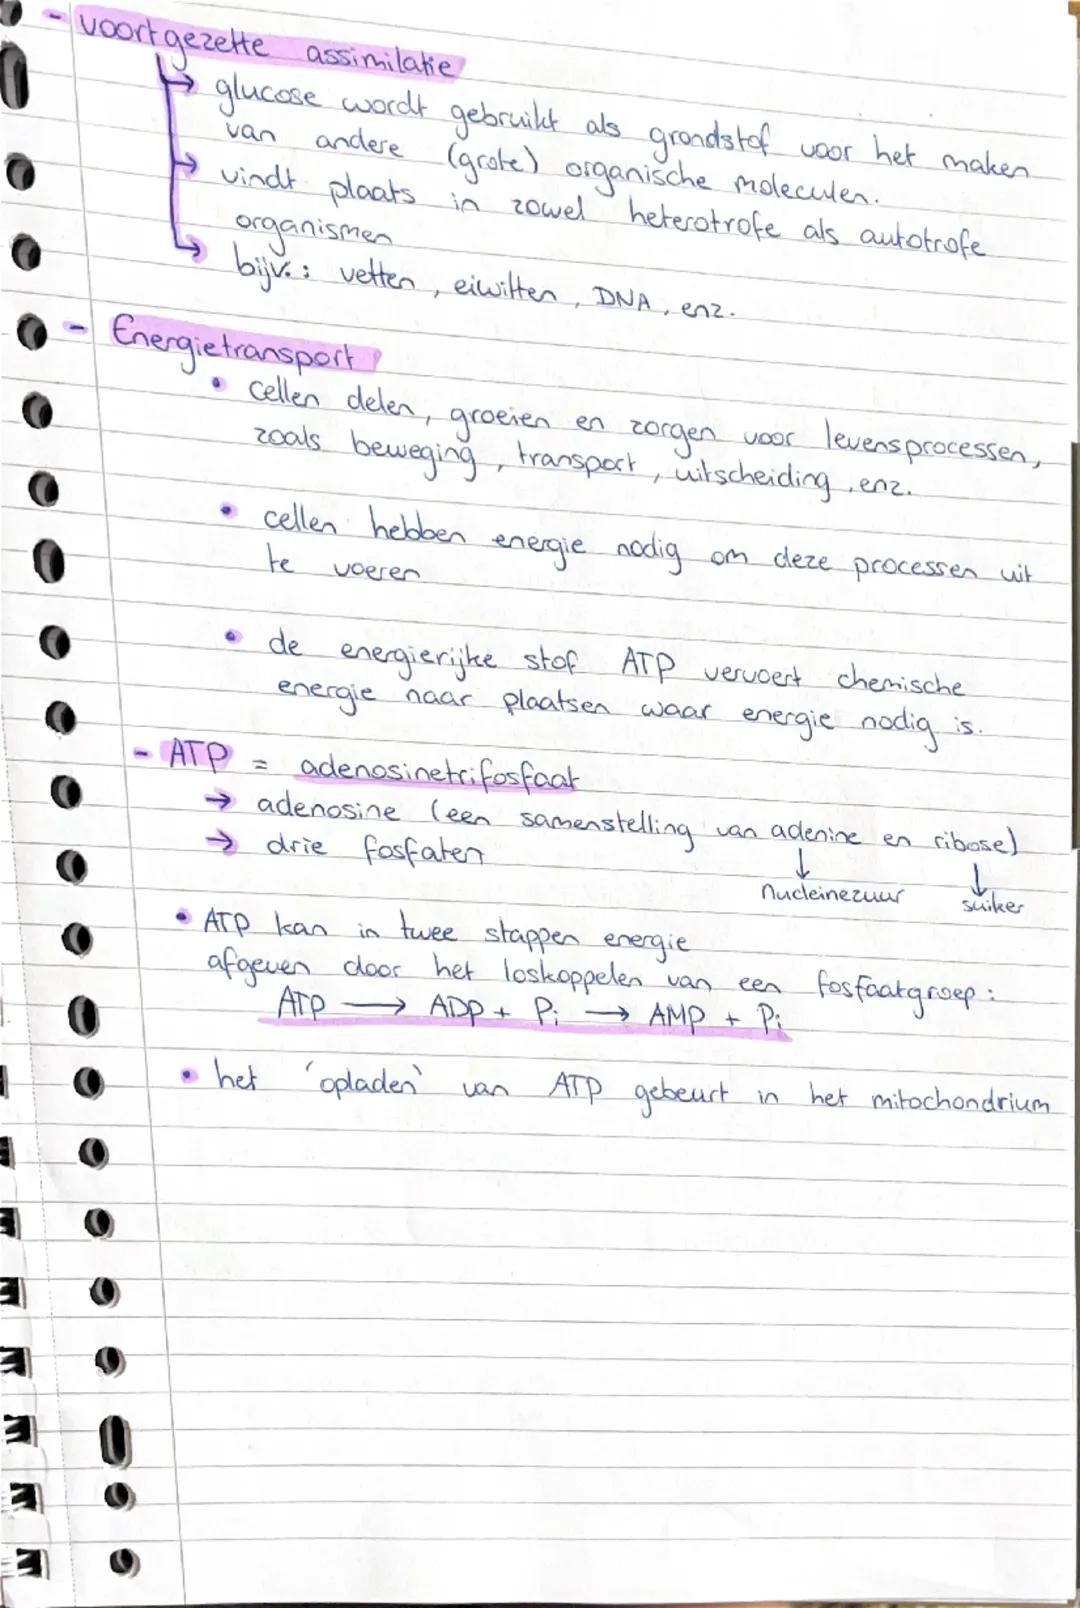 - voortgezette assimilatie
→ glucose wordt gebruikt als grondstof voor het maken
van andere (grote) organische moleculen.
→ vindt plaats in zowel heterotrofe als autotrofe
organismen
→ bijv.: vetten, eiwitten, DNA, enz.
- Energietransport
• cellen delen, groeien en zorgen voor levensprocessen,
zoals beweging, transport, uitscheiding, enz.
• cellen hebben energie nodig om deze processen uit
te voeren
• de energierijke stof ATP vervoert chemische
energie naar plaatsen waar energie nodig is.
- ATP = adenosinetrifosfaat
→ adenosine (een samenstelling van adenine en ribose)
→ drie fosfaten
↓ ↓
nucleinezuur suiker
• ATP kan in twee stappen energie
afgeven door het loskoppelen van een fosfaatgroep:
ATP → ADP + Pi → AMP + Pi
• het 'opladen' van ATP gebeurt in het mitochondrium